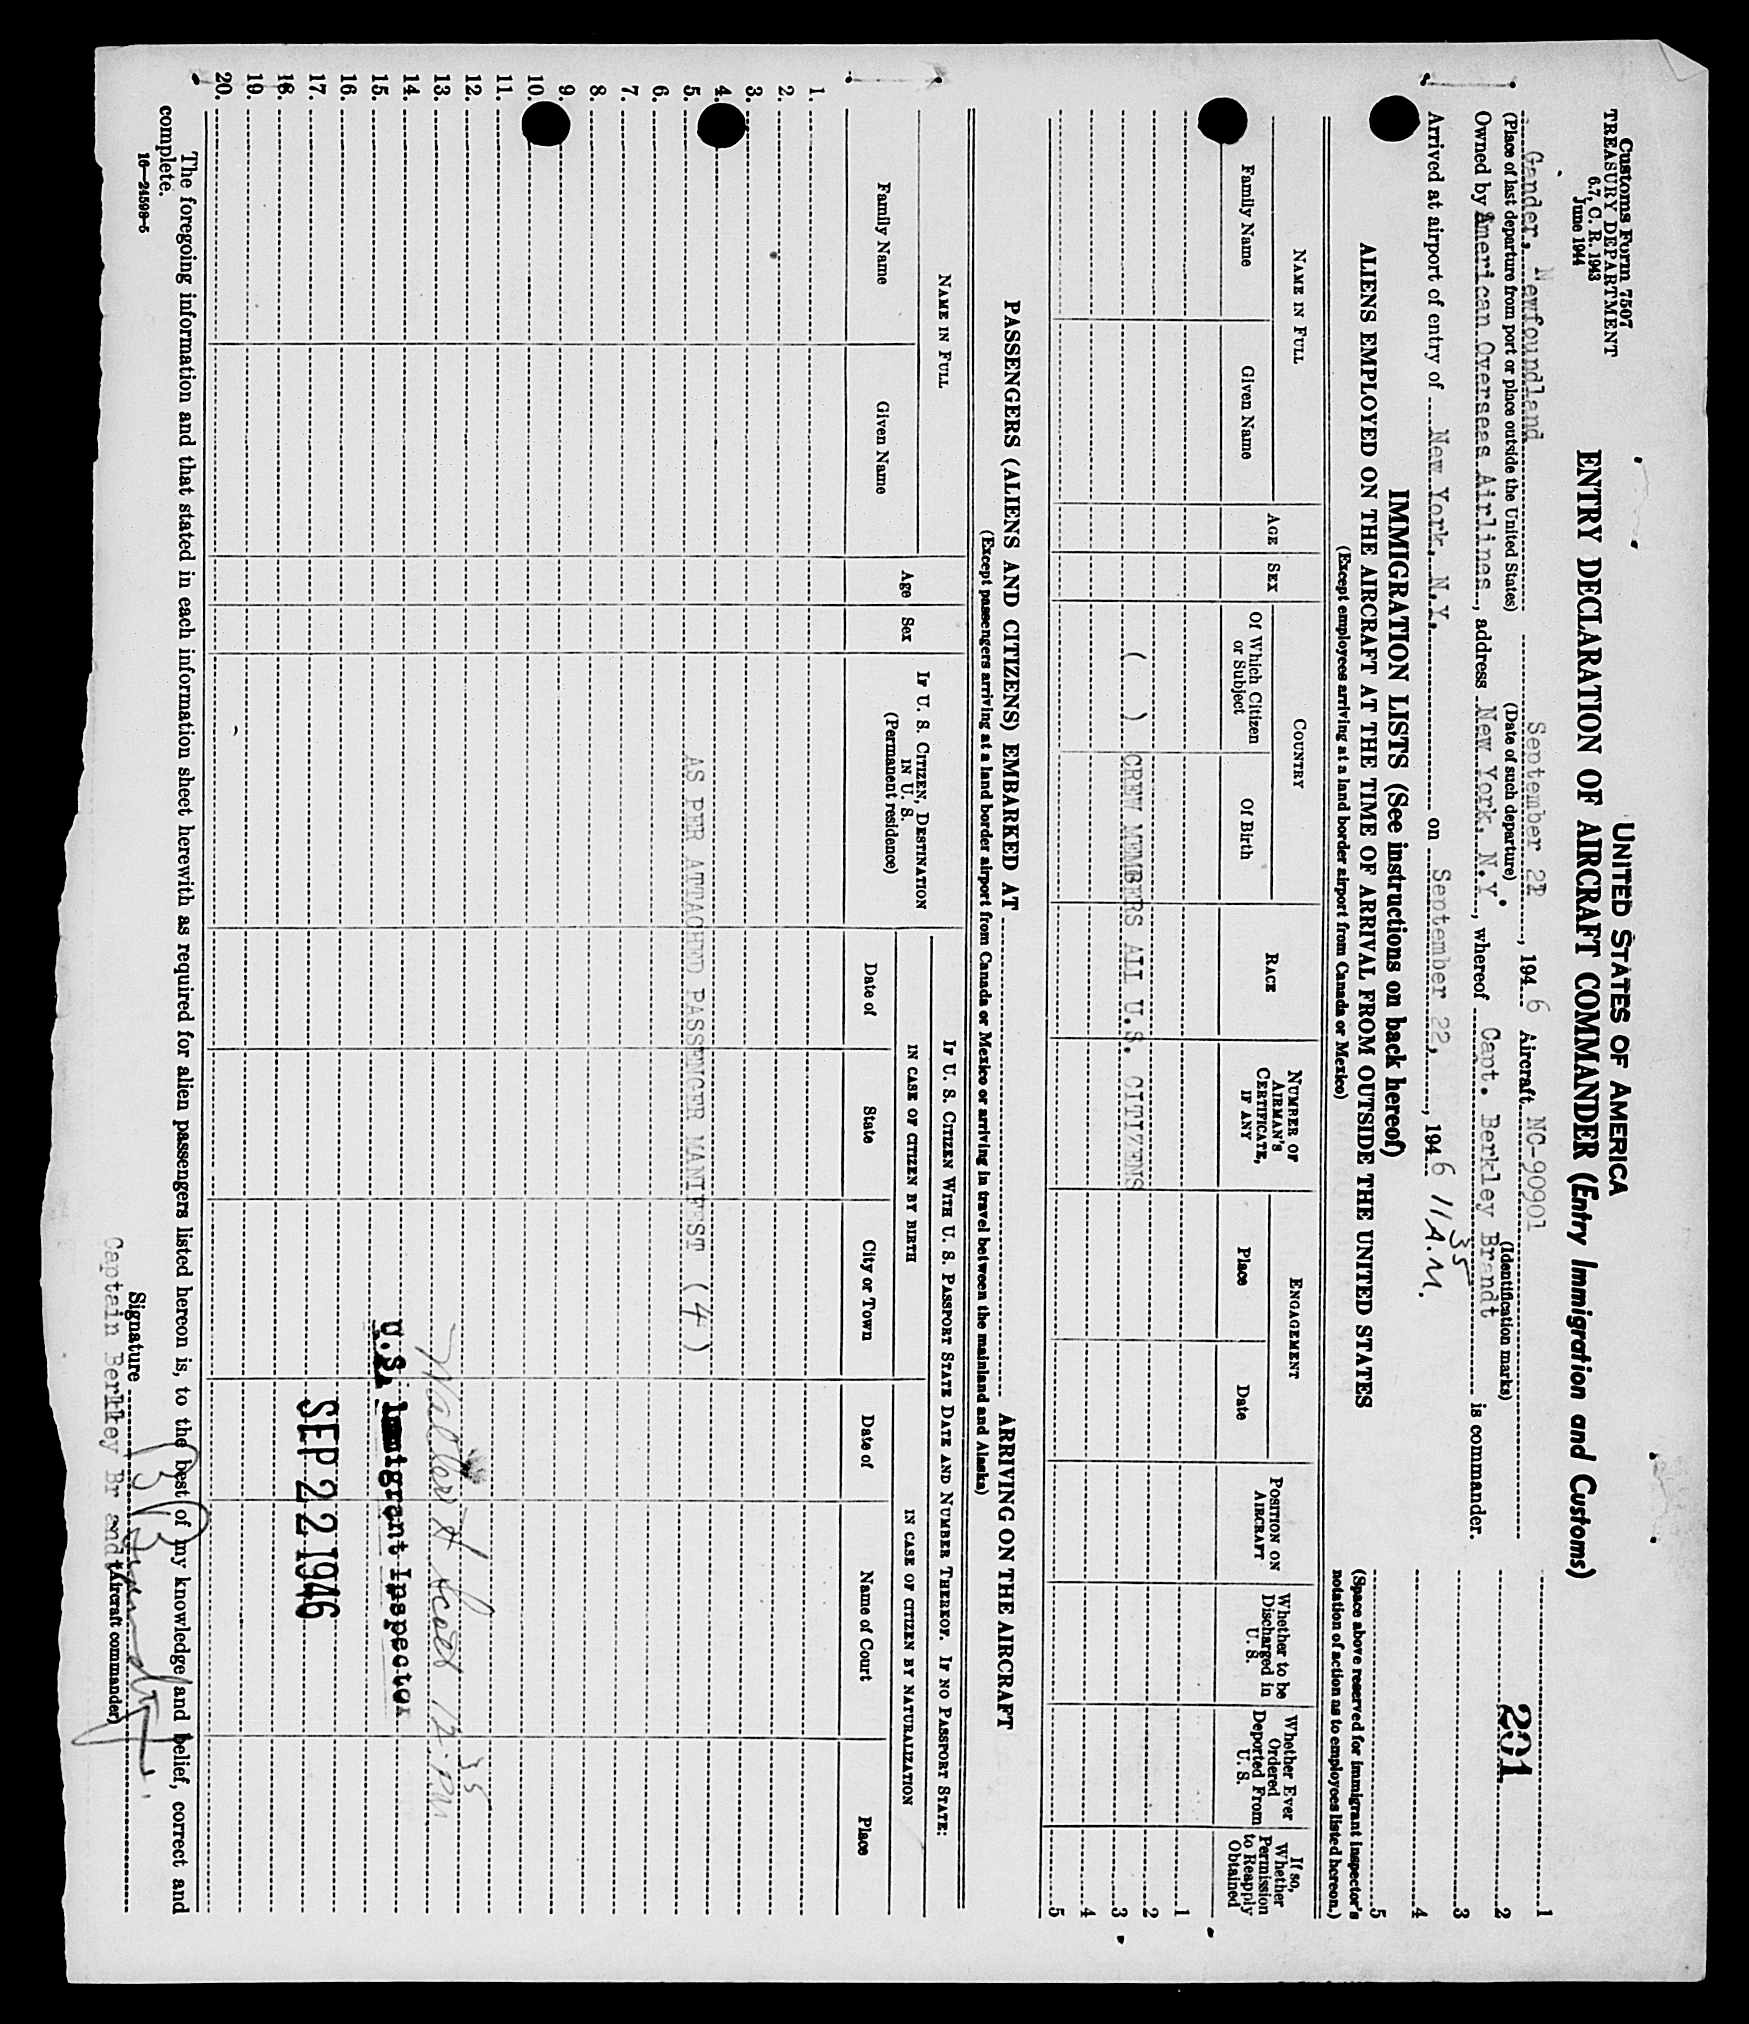 Customs Form 7507
TREASURY DEPARTMENT
6.7, C. R. 1943
June 1944
UNITED STATES OF AMERICA
ENTRY DECLARATION OF AIRCRAFT COMMANDER (Entry Immigration and Customs)
Gander, Newfoundland September 21, 1946 Aircraft NC-90901
(Place of last departure from port or place outside the United States) (Date of such departure) (Identification marks)
Owned by American Overseas Airlines, address New York, N.Y., whereof Capt. Berkley Brandt is commander.
Arrived at airport of entry of New York, N.Y. on September 22, 1946 11 35 A.M.
1
201
2
3
4
5
(Space above reserved for immigrant inspector's notation of action as to employees listed hereon.)
IMMIGRATION LISTS (See instructions on back hereof)
ALIENS EMPLOYED ON THE AIRCRAFT AT THE TIME OF ARRIVAL FROM OUTSIDE THE UNITED STATES
(Except employees arriving at a land border airport from Canada or Mexico)
NAME IN FULL
Family Name
Given Name
AGE
SEX
COUNTRY
Of Which Citizen or Subject
Of Birth
RACE
NUMBER OF AIRMAN'S CERTIFICATE, IF ANY
ENGAGEMENT
Place
Date
POSITION ON AIRCRAFT
Whether to be Discharged in U. S.
Whether Ever Ordered Deported From U. S.
If so, Whether Permission to Reapply Obtained
1
2
( ) CREW MEMBERS ALL U.S. CITIZENS 3
4
5
PASSENGERS (ALIENS AND CITIZENS) EMBARKED AT ARRIVING ON THE AIRCRAFT
(Except passengers arriving at a land border airport from Canada or Mexico or arriving in travel between the mainland and Alaska)
NAME IN FULL
Family Name
Given Name
Age
Sex
IF U. S. CITIZEN, DESTINATION IN U. S.
(Permanent residence)
IF U. S. CITIZEN WITH U. S. PASSPORT STATE DATE AND NUMBER THEREOF. IF NO PASSPORT STATE:
IN CASE OF CITIZEN BY BIRTH
IN CASE OF CITIZEN BY NATURALIZATION
Date of
State
City or Town
Date of
Name of Court
Place
1.
2.
3.
4.
5. AS PER ATTACHED PASSENGER MANIFEST (4)
6.
7.
8.
9.
10.
11.
12.
13. Walter H Scott 12 35 PM
14.
15. U.S. Immigrant Inspector
16.
17. SEP 22 1946
18.
19.
20.
The foregoing information and that stated in each information sheet herewith as required for alien passengers listed hereon is, to the best of my knowledge and belief, correct and
complete.
16—24598-5
Signature B Brandt
Captain Berkley Brandt (Aircraft commander)